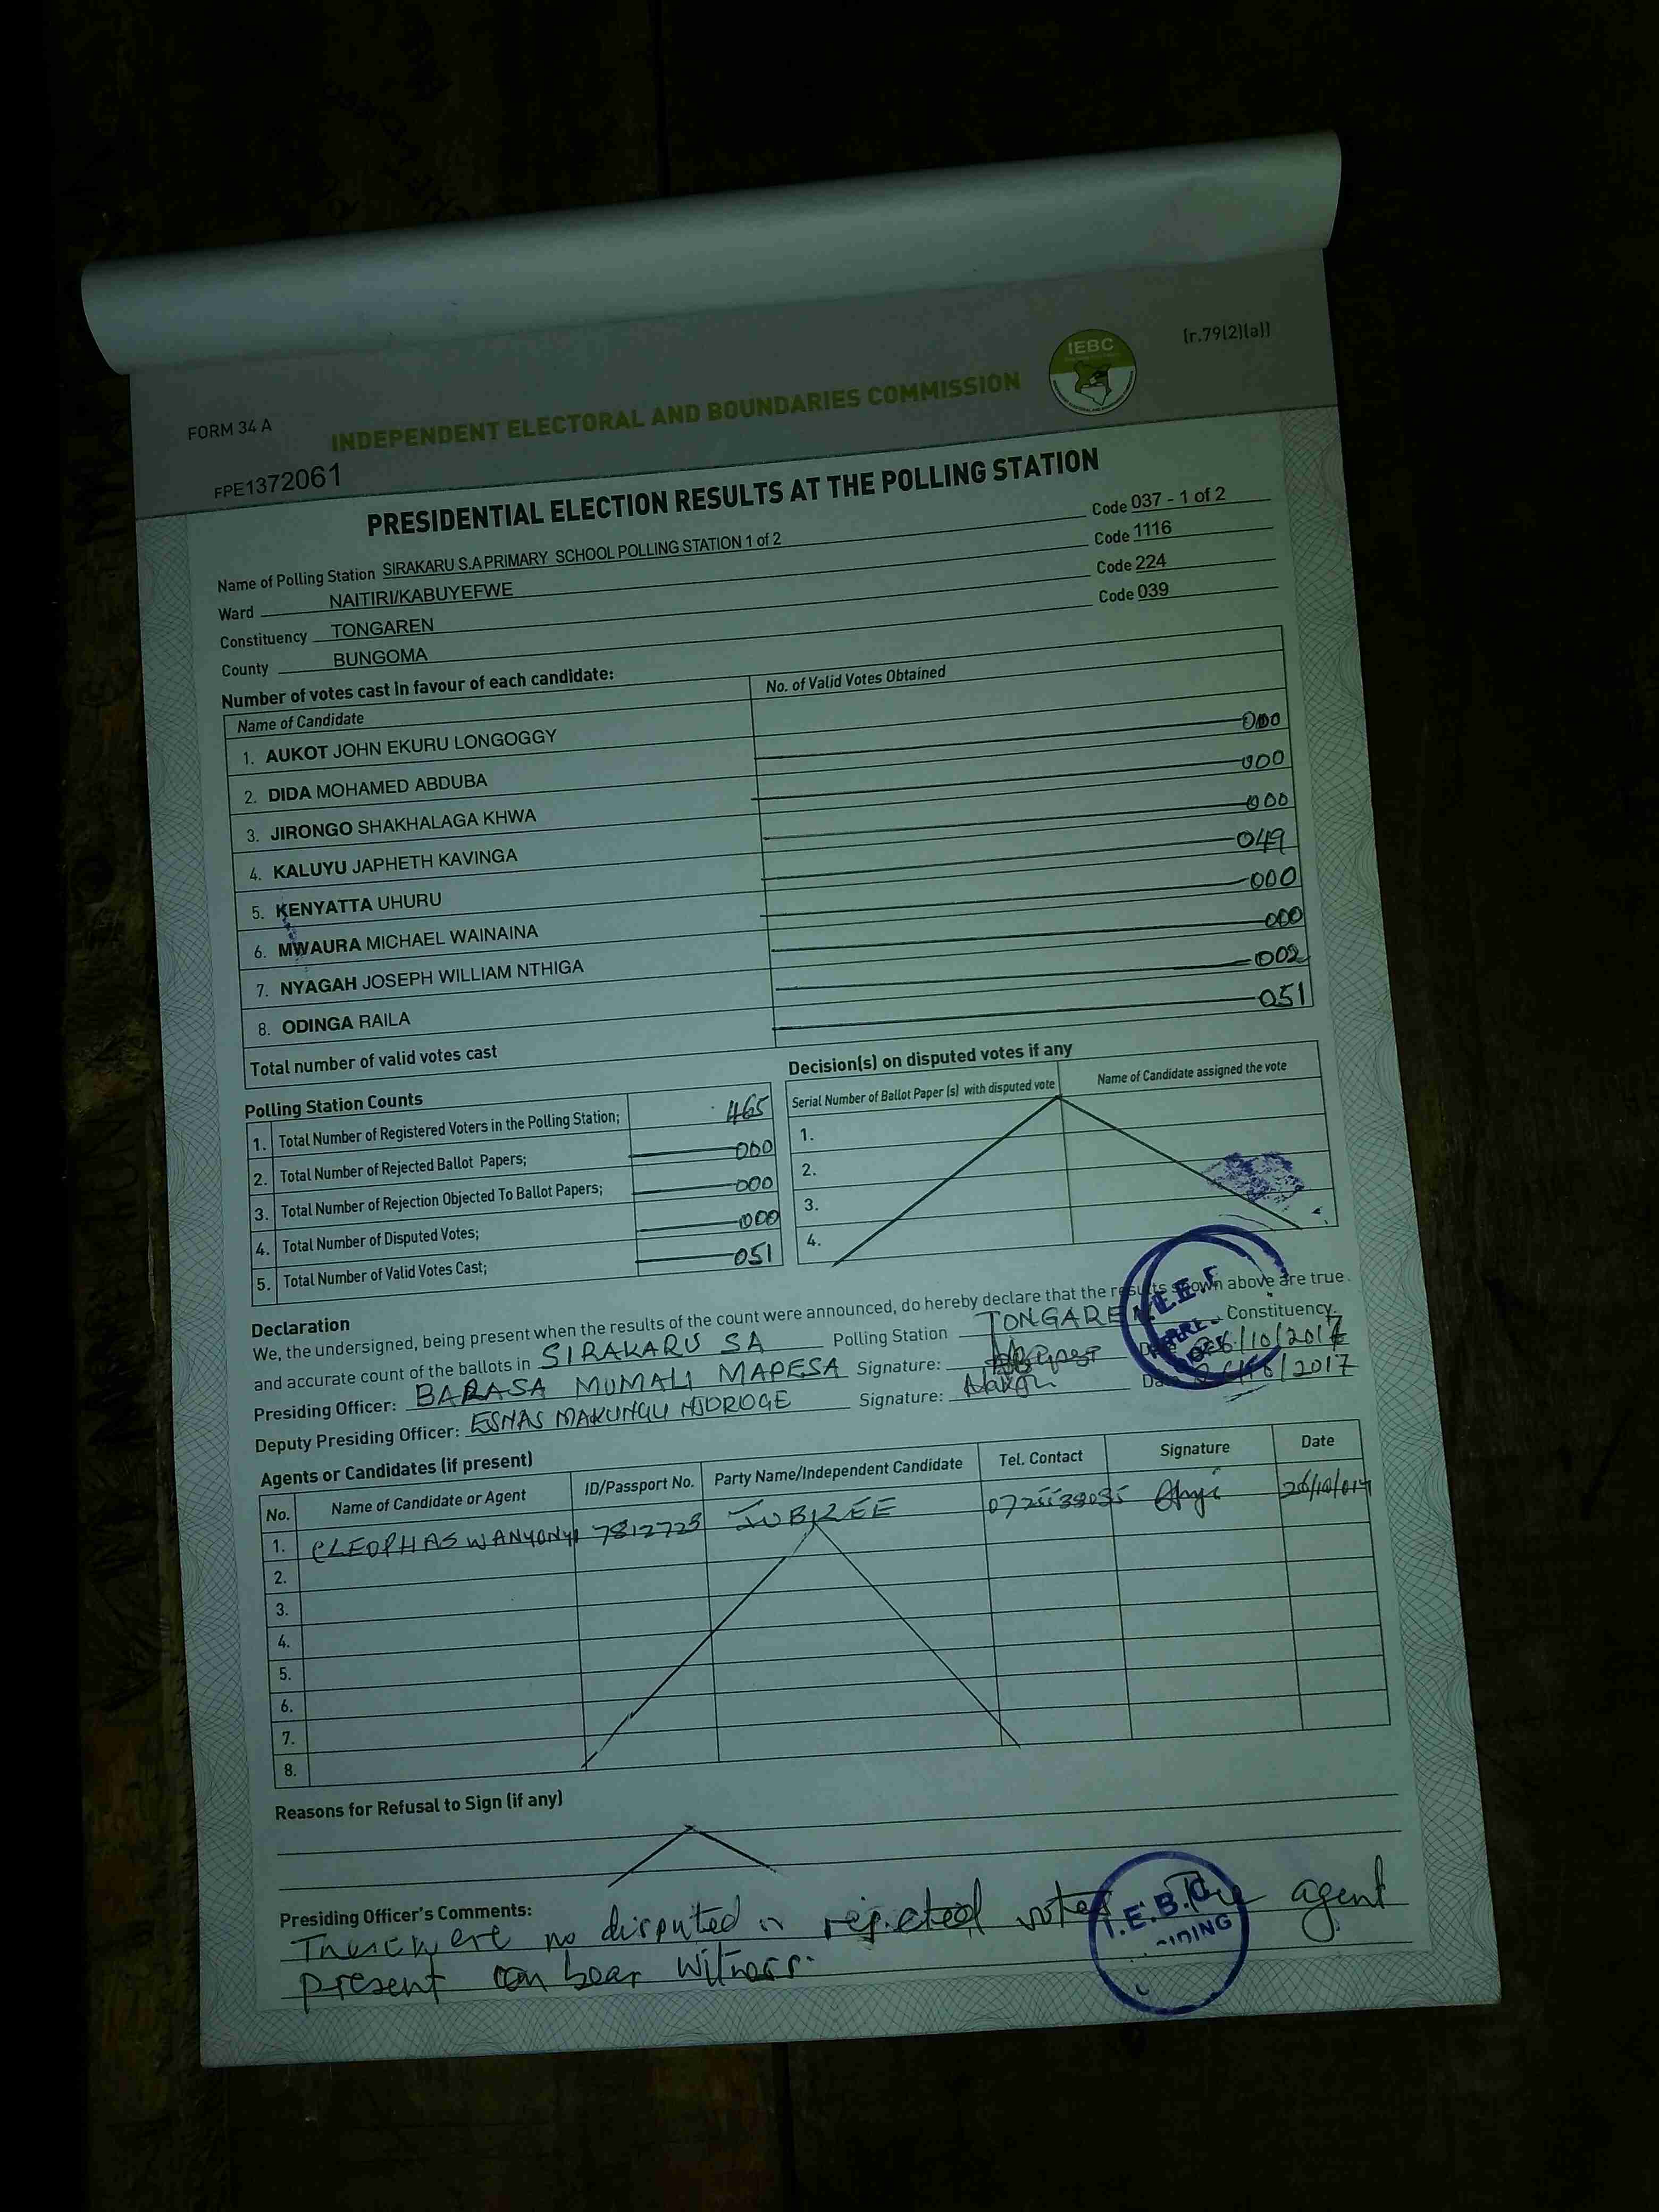 (r.79(2)(a))
IEBC
FORM 34 A
INDEPENDENT ELECTORAL AND BOUNDARIES COMMISSION
FPE1372061
PRESIDENTIAL ELECTION RESULTS AT THE POLLING STATION
Name of Polling Station SIRAKARU S.A PRIMARY SCHOOL POLLING STATION 1 of 2 Code 037 - 1 of 2
Ward NAITIRI/KABUYEFWE Code 1116
Constituency TONGAREN Code 224
County BUNGOMA Code 039
Number of votes cast In favour of each candidate:
Name of Candidate No. of Valid Votes Obtained
1. AUKOT JOHN EKURU LONGOGGY
2. DIDA MOHAMED ABDUBA 000
3. JIRONGO SHAKHALAGA KHWA 000
4. KALUYU JAPHETH KAVINGA 000
5. KENYATTA UHURU 049
6. MWAURA MICHAEL WAINAINA 000
7. NYAGAH JOSEPH WILLIAM NTHIGA 000
8. ODINGA RAILA 002
Total number of valid votes cast 051
Polling Station Counts
1. Total Number of Registered Voters in the Polling Station; 465
2. Total Number of Rejected Ballot Papers; 000
3. Total Number of Rejection Objected To Ballot Papers; 000
4. Total Number of Disputed Votes; 000
5. Total Number of Valid Votes Cast; 051
Decision(s) on disputed votes if any
Serial Number of Ballot Paper (s) with disputed vote Name of Candidate assigned the vote
1.
2.
3.
4.
Declaration
We, the undersigned, being present when the results of the count were announced, do hereby declare that the results shown above are true
and accurate count of the ballots in SIRAKARU SA Polling Station TONGAREN Constituency.
Presiding Officer: BARASA MUMALI MAPESA Signature: Date 26/10/2017
Deputy Presiding Officer: ESNAS MAKUNGU NJOROGE Signature: Date /2017
Agents or Candidates (if present)
No. Name of Candidate or Agent ID/Passport No. Party Name/Independent Candidate Tel. Contact Signature Date
1. CLEOPHAS WANYONYI 7812723 JUBILEE
2.
3.
4.
5.
6.
7.
8.
Reasons for Refusal to Sign (if any)
Presiding Officer's Comments:
There were no disputed or rejected votes. The agent
present can bear witness.
I.E.B.C